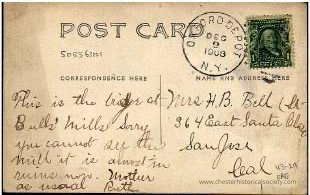 POST CARD
50556101
OXFORD DEPOT
DEC
9
1908
N.Y.
CORRESPONDENCE HERE
NAME AND ADDRESS HERE
This is the bridge at
Bulls Mills Sorry
you cannot see the
mill it is almost in
ruins now. Mother
as usual Ruth
Mrs H.B. Bell
364 East Santa Clara
San Jose
Cal
www.chesterhistoricalsociety.com